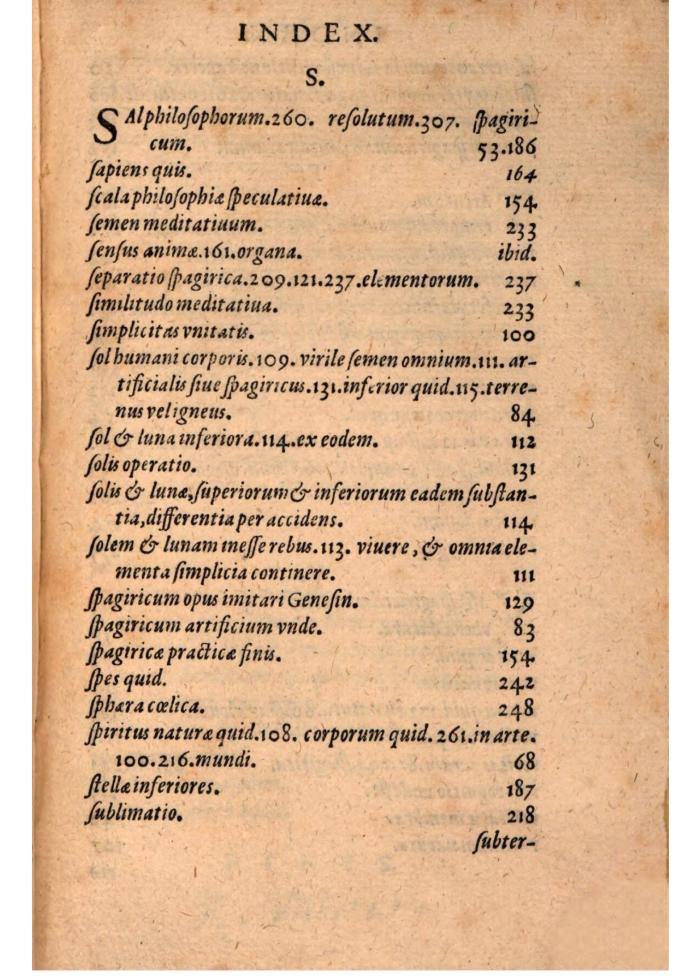 INDEX.
S.
SAl philoſophorum.260. reſolutum.307. ſpagiri-
cum. 53.186
ſapiens quis. 164
ſcala philoſophiæ ſpeculatiuæ. 154
ſemen meditatiuum. 233
ſenſus animæ.161.organa. ibid.
ſeparatio ſpagirica.209.121.237.elementorum. 237
ſimilitudo meditatiua. 233
ſimplicitas vnitatis. 100
ſol humani corporis.109. virile ſemen omnium.111. ar-
tificialis ſiue ſpagiricus.131.inferior quid.115.terre-
nus vel igneus. 84
ſol & luna inferiora.114.ex eodem. 112
ſolis operatio. 131
ſolis & lunæ,ſuperiorum & inferiorum eadem ſubſtan-
tia,differentia per accidens. 114
ſolem & lunam ineſſe rebus.113. viuere, & omnia ele-
menta ſimplicia continere. 111
ſpagiricum opus imitari Geneſin. 129
ſpagiricum artificium vnde. 83
ſpagiricæ practicæ finis. 154
ſpes quid. 242
ſphæra cœlica. 248
ſpiritus naturæ quid.108. corporum quid. 261.in arte.
100.216.mundi. 68
ſtellæ inferiores. 187
ſublimatio. 218
ſubter-